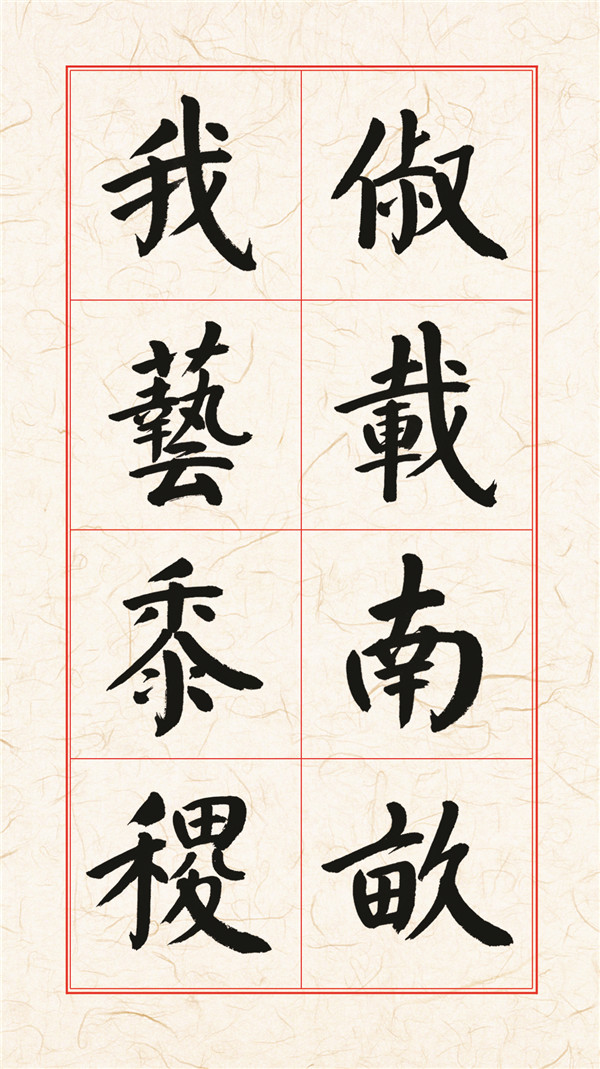 俶載南畝
我藝黍稷